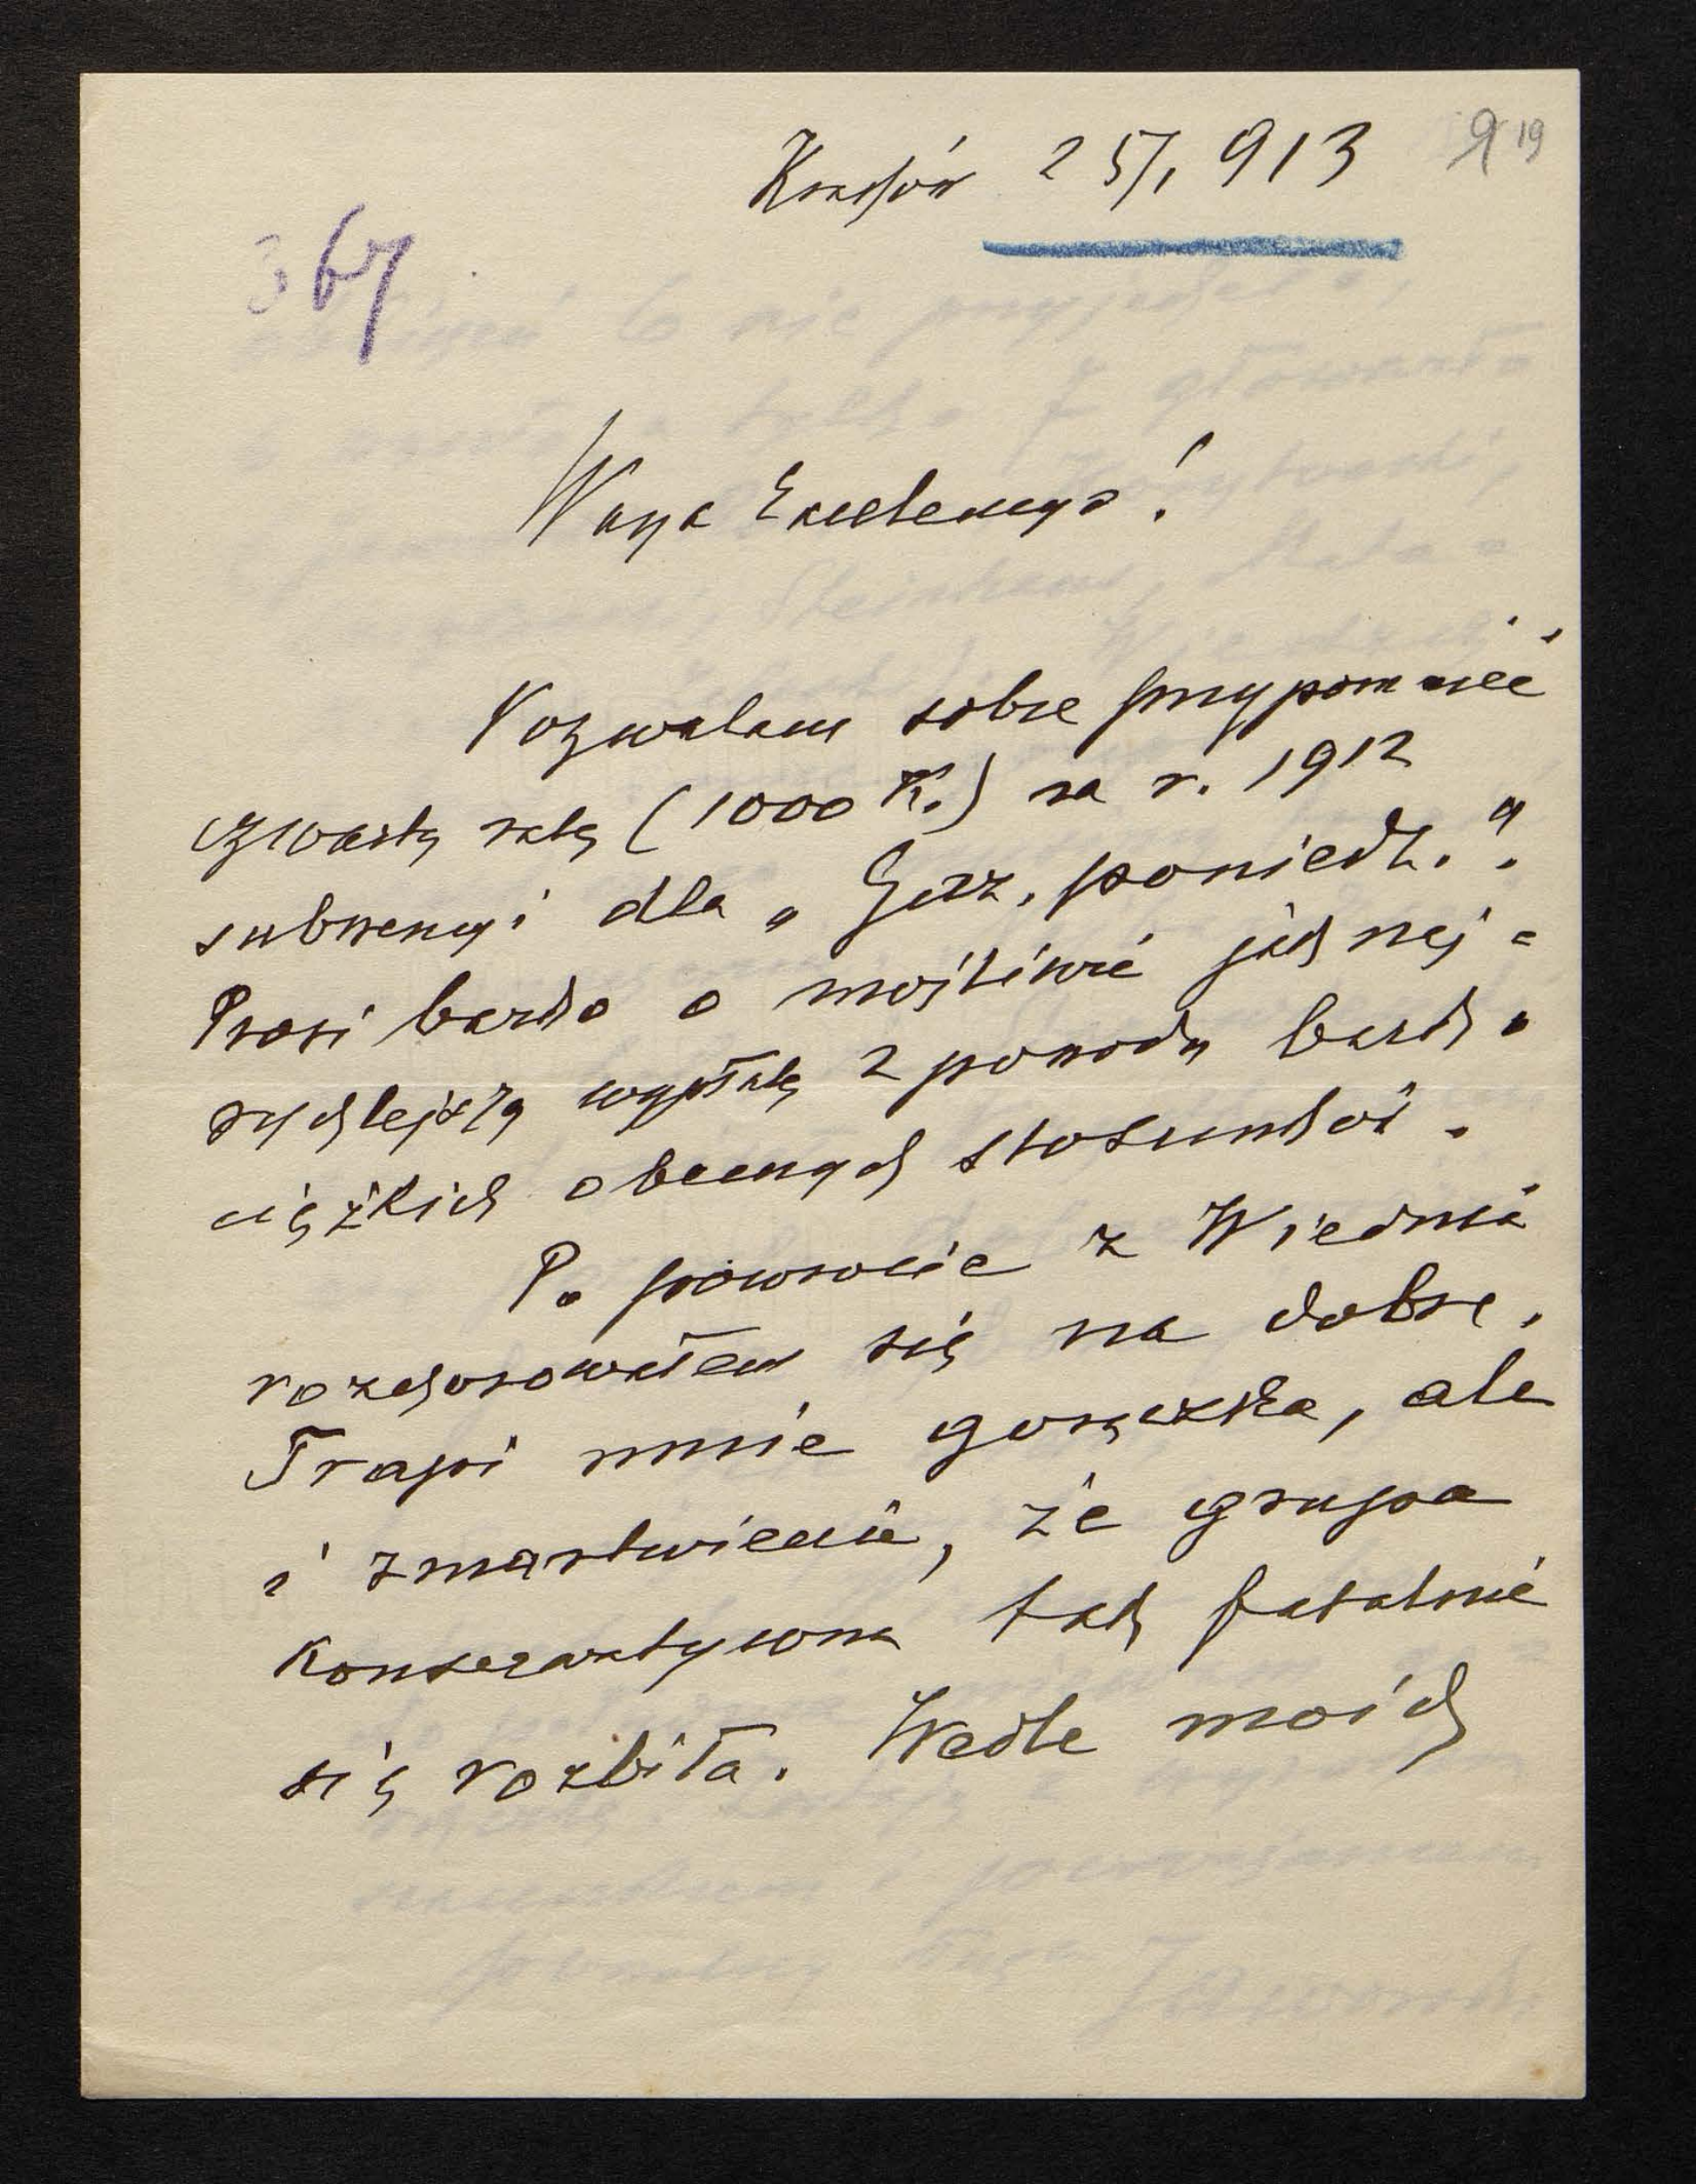 Kraków 25/1 913
9 19
367
Wasza Excelencyo!
Pozwalam sobie przypomnieć
czwartą ratę (1000 K.) za r. 1912
subwencyi dla „Gaz. poniedz.".
Prosi bardzo o możliwie jak naj=
rychlejszą wypłatę z powodu bardzo
ciężkich obecnych stosunków.
Po powrocie z Wiednia
rozchorowałem się na dobre.
Trapi mnie gorączka, ale
i zmartwienie, że grupa
konserwatywna tak fatalnie
się rozbiła. Wedle moich